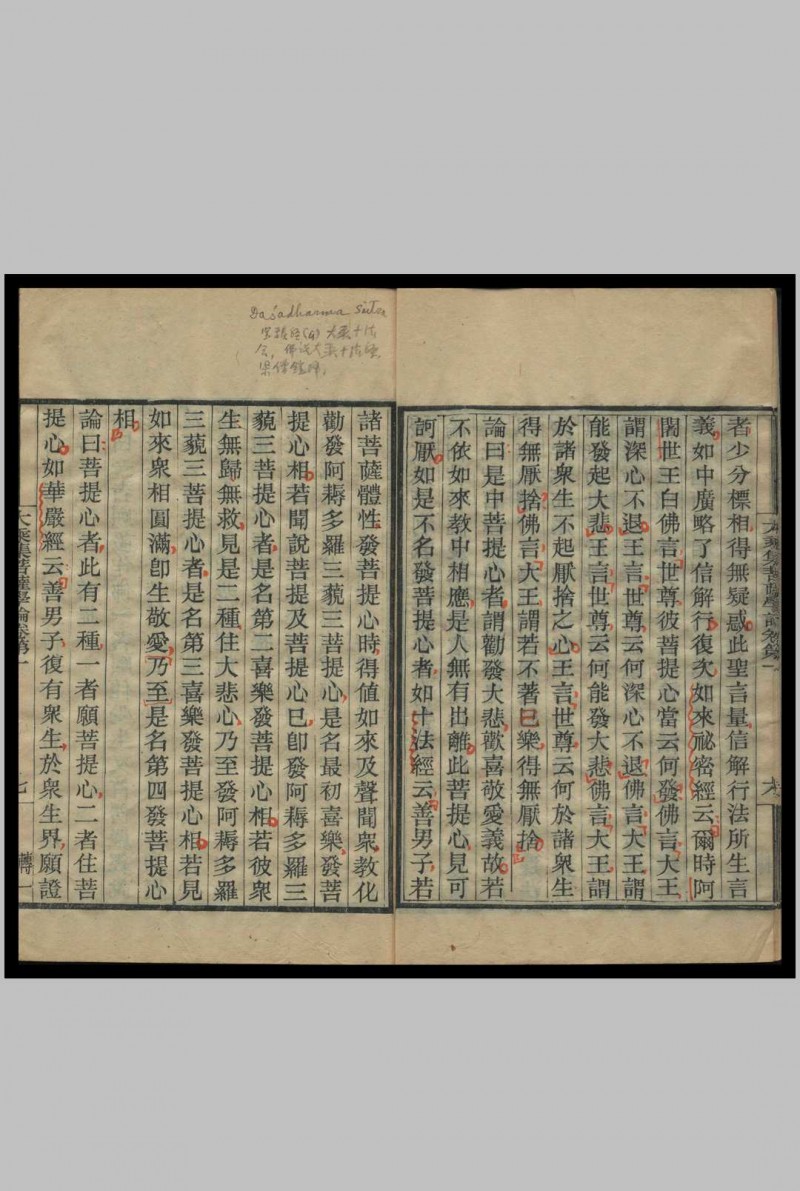 者少分標相得無疑惑此聖言量信解行法所生言
義如中廣略了信解行復次如來祕密經云爾時阿
闍世王白佛言世尊彼菩提心當云何發佛言大王
謂深心不退王言世尊云何深心不退佛言大王謂
能發起大悲王言世尊云何能發大悲佛言大王謂
於諸衆生不起厭捨之心王言世尊云何於諸衆生
得無厭捨佛言大王謂若不著已樂得無厭捨
論曰是中菩提心者謂勸發大悲歡喜敬愛義故若
不依如來教中相應是人無有出離此菩提心見可
訶厭如是不名發菩提心者如十法經云善男子若
大乘集菩薩學論卷第一
六
Daśadharma Sūtra
諸菩薩體性發菩提心時得值如來及聲聞衆教化
勸發阿耨多羅三藐三菩提心是名最初喜樂發菩
提心相若聞說菩提及菩提心已卽發阿耨多羅三
藐三菩提心者是名第二喜樂發菩提心相若彼衆
生無歸無救見是二種住大悲心乃至發阿耨多羅
三藐三菩提心者是名第三喜樂發菩提心相若見
如來衆相圓滿卽生敬愛乃至是名第四發菩提心
相
論曰菩提心者此有二種一者願菩提心二者住菩
提心如華嚴經云善男子復有衆生於衆生界願證
大乘集菩薩學論卷第一
七